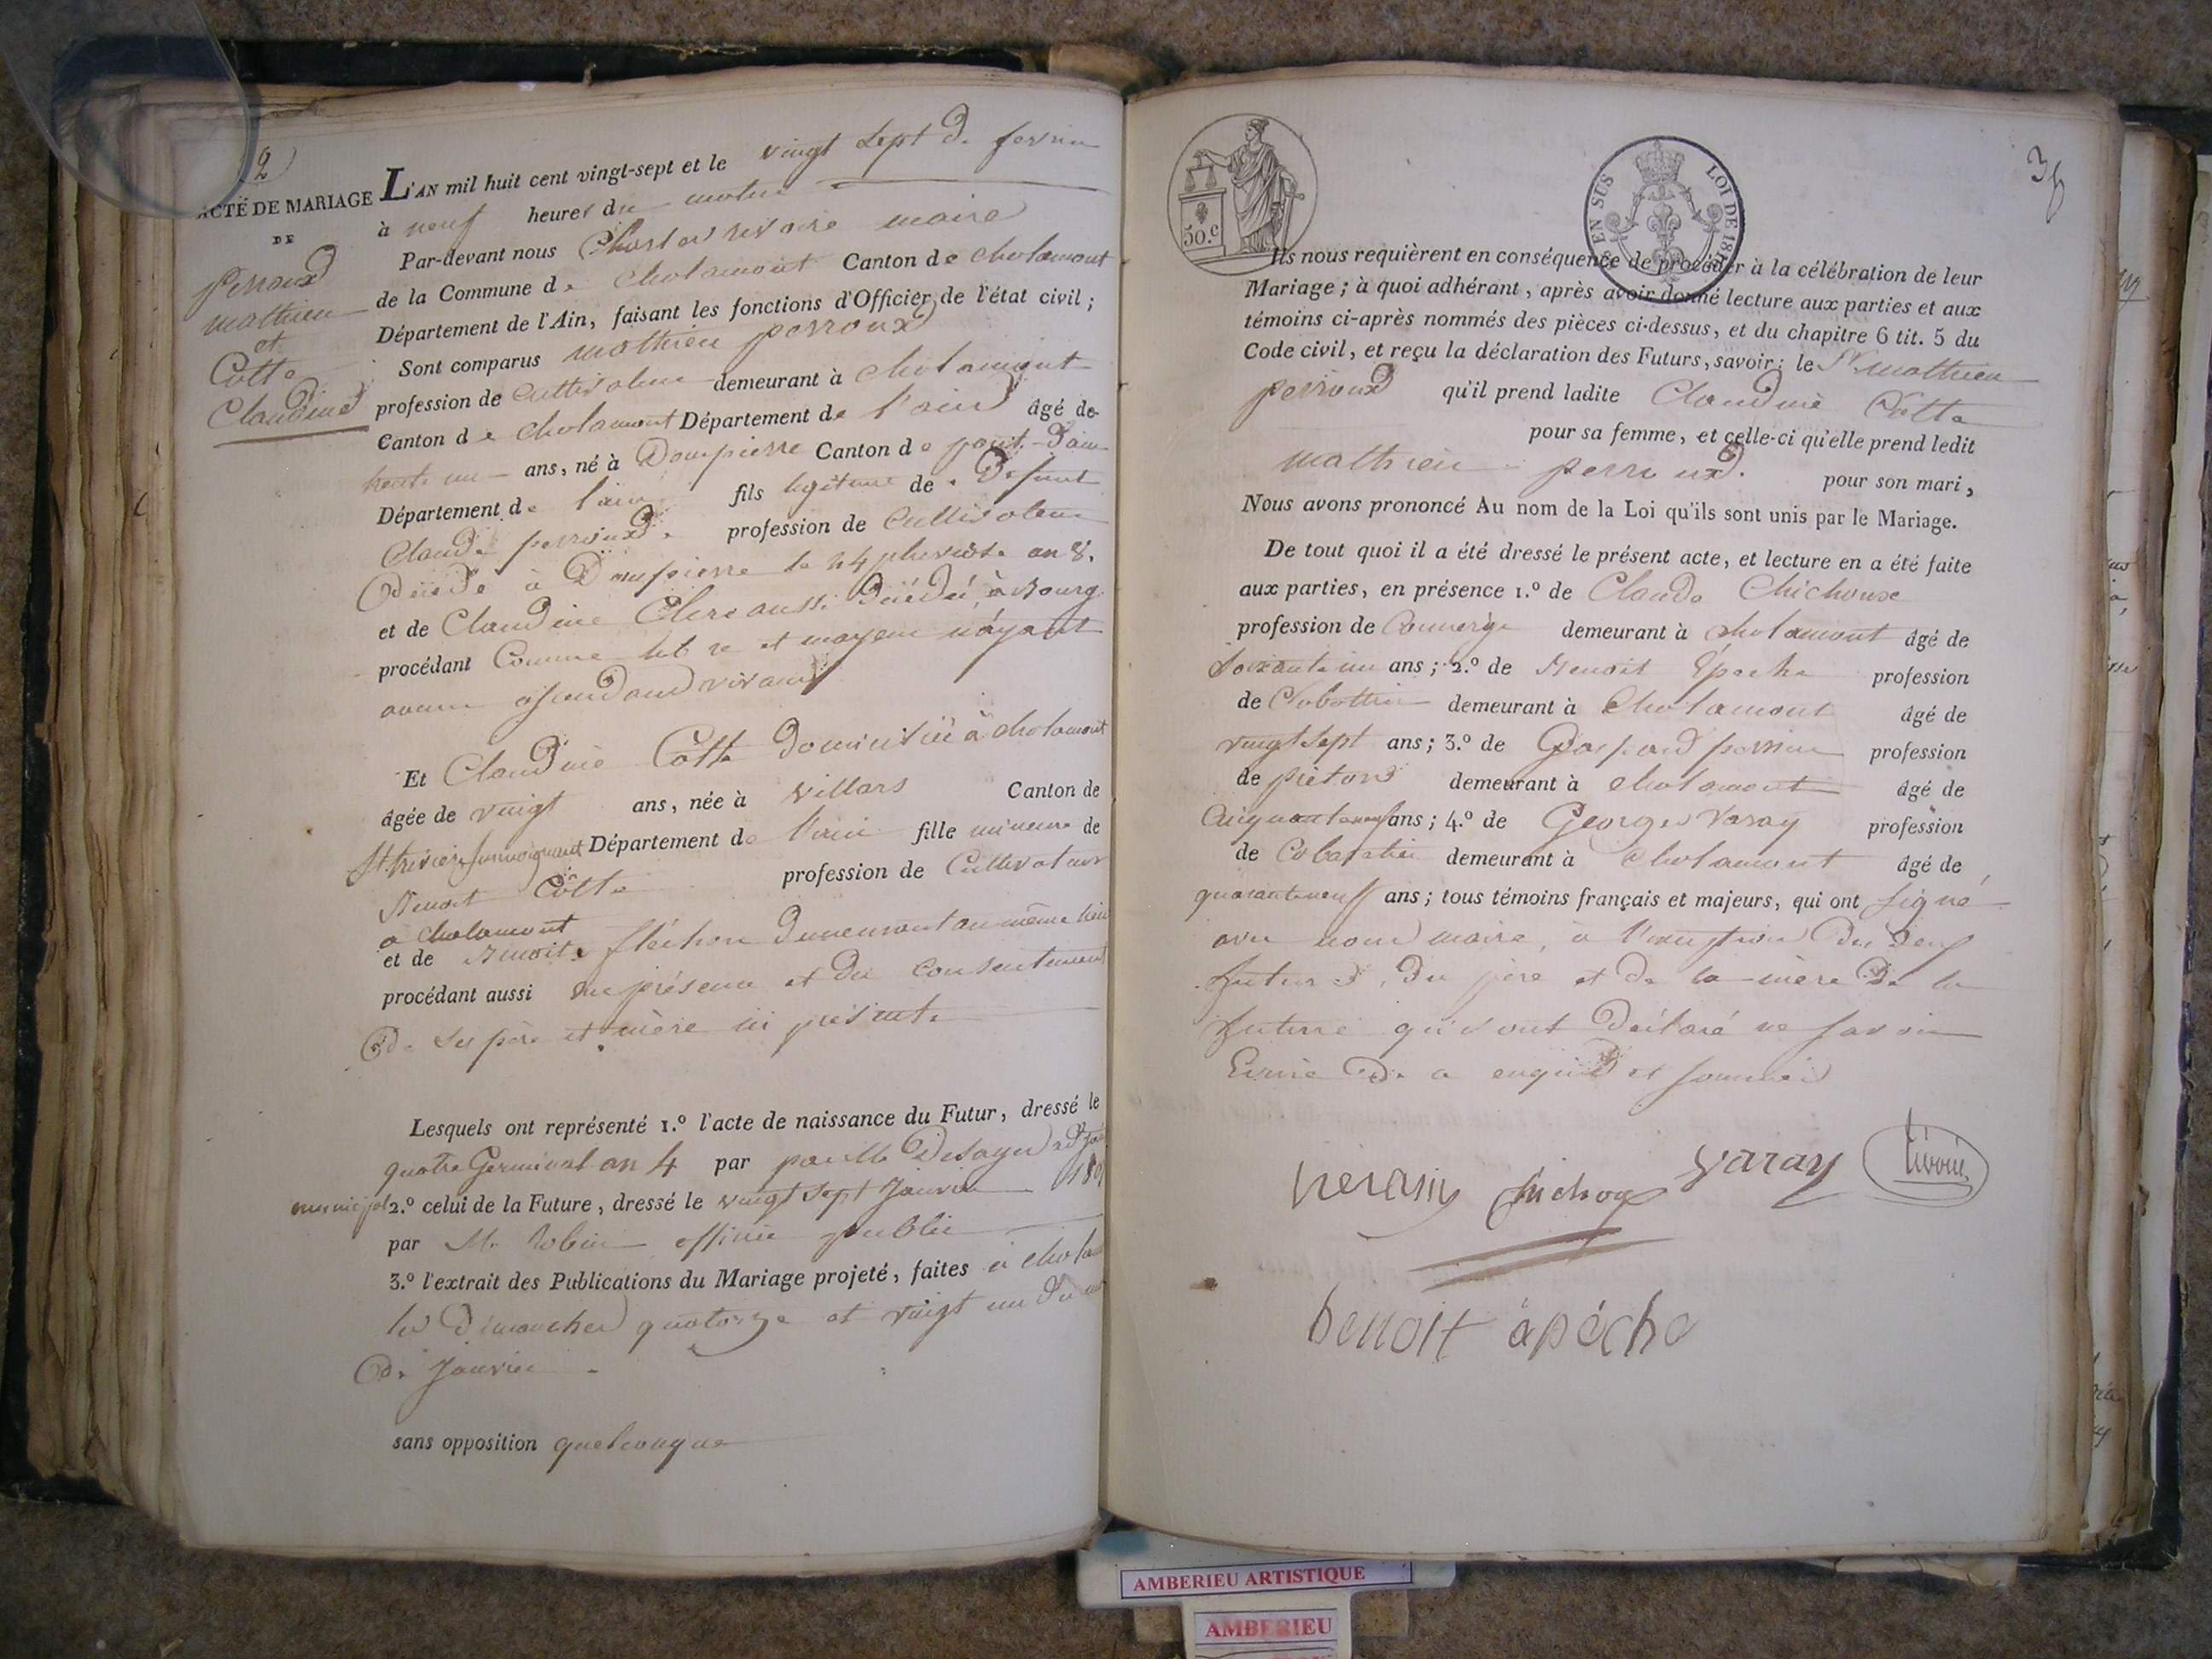 2
ACTE DE MARIAGE
DE
perroud
mathieu
et
Cotte
Claudine
L'AN mil huit cent vingt-sept et le vingt sept de fevrier
à neuf heures du matin
Par-devant nous Charles rivoire maire
de la Commune de chalamont Canton de chalamont
Département de l'Ain, faisant les fonctions d'Officier de l'état civil;
Sont comparus mathieu perroud
profession de cultivateur demeurant à chalamont
Canton de chalamont Département de l'ain âgé de
trente un ans, né à Dompierre Canton de pont-d'ain
Département de l'ain fils legitime de Defunt
Claude perroud profession de cultivateur
Décédé à Dompierre le 24 pluviose an 8.
et de Claudine Clerc aussi décédé à Bourg
procédant Comme libre et majeur n'ayant
aucun ascendant vivant
Et Claudine Cotte domiciliée à chalamont
âgée de vingt ans, née à villars Canton de
St trivier Département de l'ain fille mineure de
Benoit Cotte profession de Cultivateur
a chalamont
et de Benoite fléchon demeurant au même lieu
procédant aussi en présence et du consentement
De ses père et mère ici présents
Lesquels ont représenté 1.º l'acte de naissance du Futur, dressé le
quatre Germinal an 4 par
municipal 2.º celui de la Future, dressé le vingt sept Janvier
par Mr Robin officier public
3.º l'extrait des Publications du Mariage projeté, faites à
les Dimanches quatorze et vingt un du
de Janvier
sans opposition quelconque
50.c
EN SUS
LOI DE
Ils nous requièrent en conséquence de procéder à la célébration de leur
Mariage; à quoi adhérant, après avoir donné lecture aux parties et aux
témoins ci-après nommés des pièces ci-dessus, et du chapitre 6 tit. 5 du
Code civil, et reçu la déclaration des Futurs, savoir: le Sr mathieu
perroud qu'il prend ladite Claudine Cotte
pour sa femme, et celle-ci qu'elle prend ledit
mathieu perroud pour son mari,
Nous avons prononcé Au nom de la Loi qu'ils sont unis par le Mariage.
De tout quoi il a été dressé le présent acte, et lecture en a été faite
aux parties, en présence 1.º de Claude Chichoux
profession de Concierge demeurant à chalamont âgé de
soixante un ans; 2.º de Benoit Epeche profession
de Sabottier demeurant à chalamont âgé de
vingt sept ans; 3.º de Gaspard profession
de piéton demeurant à chalamont âgé de
Cinquante neuf ans; 4.º de George Varay profession
de Cabaretier demeurant à chalamont âgé de
quarante neuf ans; tous témoins français et majeurs, qui ont signé
avec nous maire, à l'exception des deux
futurs, du père et de la mère de la
future qui ont déclaré ne savoir
Ecrire de ce enquis et sommés
chichoux
varay
Rivoire
benoit apéche
AMBERIEU ARTISTIQUE
AMBERIEU